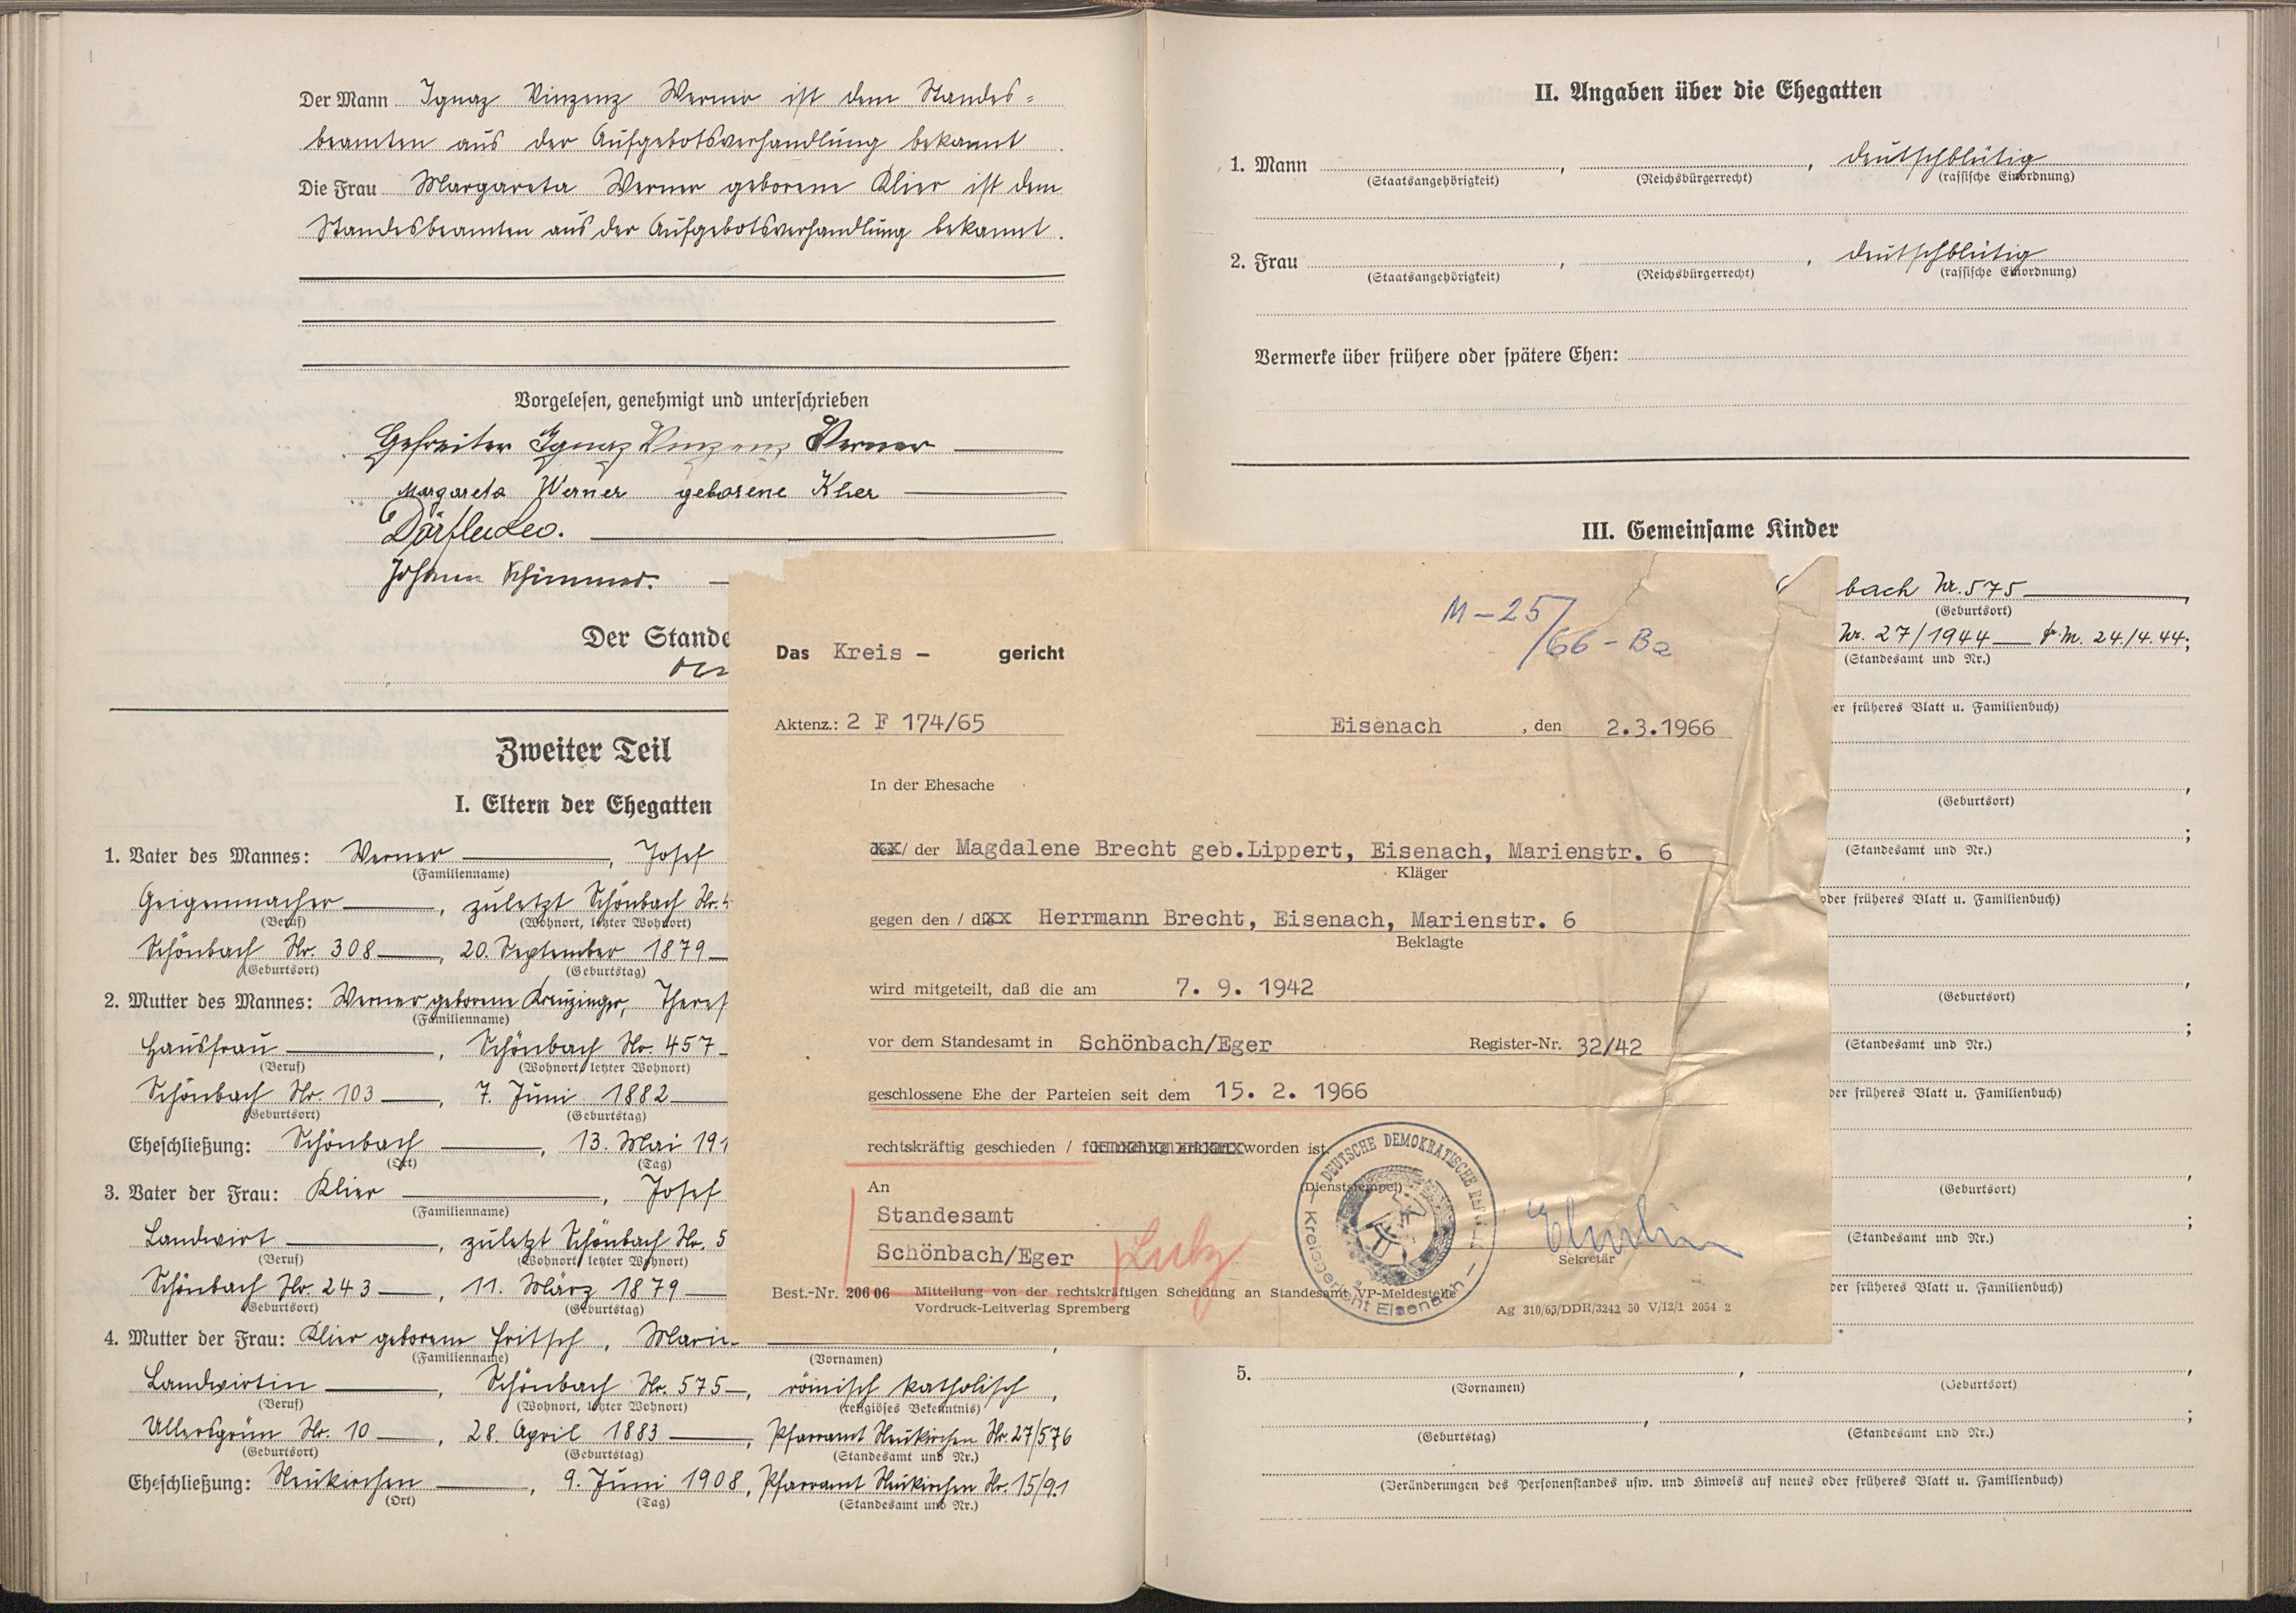 Der Mann Ignaz Vinzenz Werner ist dem Standes=
beamten aus der Aufgebotsverhandlung bekannt.
Die Frau Margareta Werner geborene Klier ist dem
Standesbeamten aus der Aufgebotsverhandlung bekannt.
Vorgelesen, genehmigt und unterschrieben
Gefreiter Ignaz Vinzenz Werner
Margareta Werner geborene Klier
Johann Schimmer.
Der Stande
Zweiter Teil
I. Eltern der Ehegatten
1. Vater des Mannes: Werner, Josef
(Familienname)
Geigenmacher, zuletzt Schönbach Nr.
(Beruf) (Wohnort, letzter Wohnort)
Schönbach Nr. 308, 20. September 1879
(Geburtsort) (Geburtstag)
2. Mutter des Mannes: Werner geborene Kreuzinger, Theres
(Familienname)
Hausfrau, Schönbach Nr. 457
(Beruf) (Wohnort, letzter Wohnort)
Schönbach Nr. 103, 7. Juni 1882
(Geburtsort) (Geburtstag)
Eheschließung: Schönbach, 13. Mai 191
(Ort) (Tag)
3. Vater der Frau: Klier, Josef
(Familienname)
Landwirt, zuletzt Schönbach Nr. 5
(Beruf) (Wohnort, letzter Wohnort)
Schönbach Nr. 243, 11. März 1879
(Geburtsort) (Geburtstag)
4. Mutter der Frau: Klier geborene Fritsch, Marie
(Familienname) (Vornamen)
Landwirtin, Schönbach Nr. 575, römisch katholisch,
(Beruf) (Wohnort, letzter Wohnort) (religiöses Bekenntnis)
Ullersgrün Nr. 10, 28. April 1883, Pfarramt Neukirchen Nr. 27/576
(Geburtsort) (Geburtstag) (Standesamt und Nr.)
Eheschließung: Neukirchen, 9. Juni 1908, Pfarramt Neukirchen Nr. 15/91
(Ort) (Tag) (Standesamt und Nr.)
Das Kreis - gericht
M-25/66-Ba
Aktenz.: 2 F 174/65 Eisenach, den 2.3.1966
In der Ehesache
des / der Magdalene Brecht geb.Lippert, Eisenach, Marienstr. 6
Kläger
gegen den / die Herrmann Brecht, Eisenach, Marienstr. 6
Beklagte
wird mitgeteilt, daß die am 7. 9. 1942
vor dem Standesamt in Schönbach/Eger Register-Nr. 32/42
geschlossene Ehe der Parteien seit dem 15. 2. 1966
rechtskräftig geschieden / für nichtig erklärt worden ist.
An (Dienststempel)
Standesamt
Schönbach/Eger
Sekretär
DEUTSCHE DEMOKRATISCHE REPU
Kreisgericht Eisenach
Best.-Nr. 206 06 Mitteilung von der rechtskräftigen Scheidung an Standesamt VP-Meldestelle
Vordruck-Leitverlag Spremberg Ag 310/65/DDR/3242 50 V/12/1 2054 2
II. Angaben über die Ehegatten
1. Mann , , deutschblütig
(Staatsangehörigkeit) (Reichsbürgerrecht) (rassische Einordnung)
2. Frau , , deutschblütig
(Staatsangehörigkeit) (Reichsbürgerrecht) (rassische Einordnung)
Vermerke über frühere oder spätere Ehen:
III. Gemeinsame Kinder
bach Nr. 575,
(Geburtsort)
Nr. 27/1944 24./4.44;
(Standesamt und Nr.)
er früheres Blatt u. Familienbuch)
,
(Geburtsort)
;
(Standesamt und Nr.)
oder früheres Blatt u. Familienbuch)
,
(Geburtsort)
;
(Standesamt und Nr.)
der früheres Blatt u. Familienbuch)
,
(Geburtsort)
;
(Standesamt und Nr.)
der früheres Blatt u. Familienbuch)
5. , ,
(Vornamen) (Geburtsort)
, ;
(Geburtstag) (Standesamt und Nr.)
(Veränderungen des Personenstandes usw. und Hinweis auf neues oder früheres Blatt u. Familienbuch)